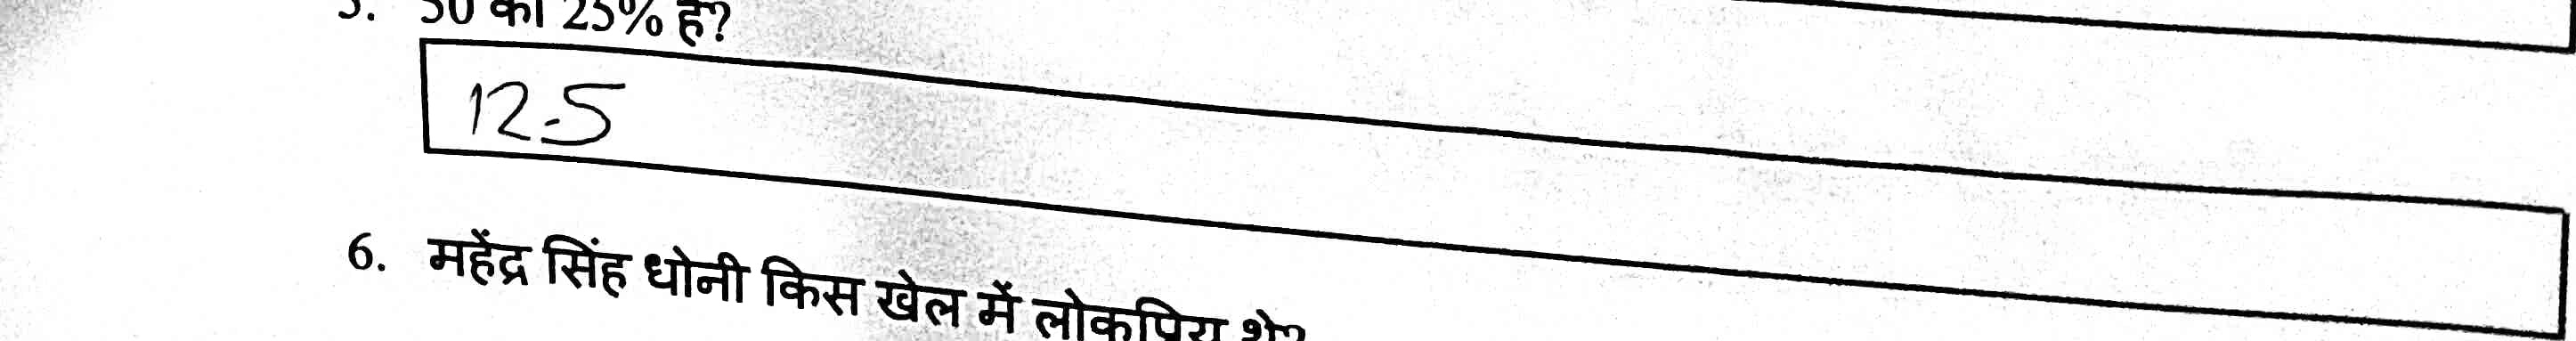 5. 50 का 25% है?
12.5
6. महेंद्र सिंह धोनी किस खेल में लोकप्रिय थे?